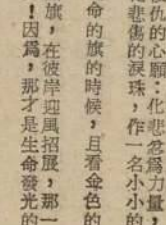 復仇的心願…化悲忿爲力量，
悲傷的淚珠，作一名小小的
命的旗的時候，且看金色的
旗，在彼岸迎風招展，那一
！因爲，那才是生命發光的